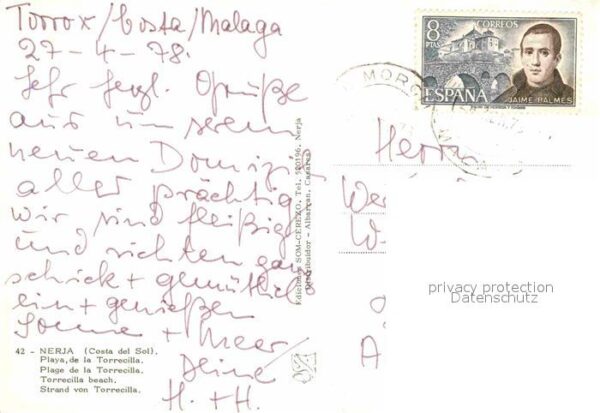 Torrox/Costa/Malaga
27-4-78.
Sehr herzl. Grüße
aus unserem
neuen Domizil
alles prächtig
wir sind fleißig
und richten ganz
schick + gemütlich
ein + genießen
Sonne + Meer
Deine
H. + H.
42 - NERJA (Costa del Sol).
Playa, de la Torrecilla.
Plage de la Torrecilla.
Torrecilla beach.
Strand von Torrecilla.
Ediciones SOM-CEREZO, Tel. 520196, Nerja
Distribuidor - Albarran, Casares
8
PTAS
CORREOS
ESPAÑA
JAIME BALMES
Herrn
We
W-
privacy protection
Datenschutz